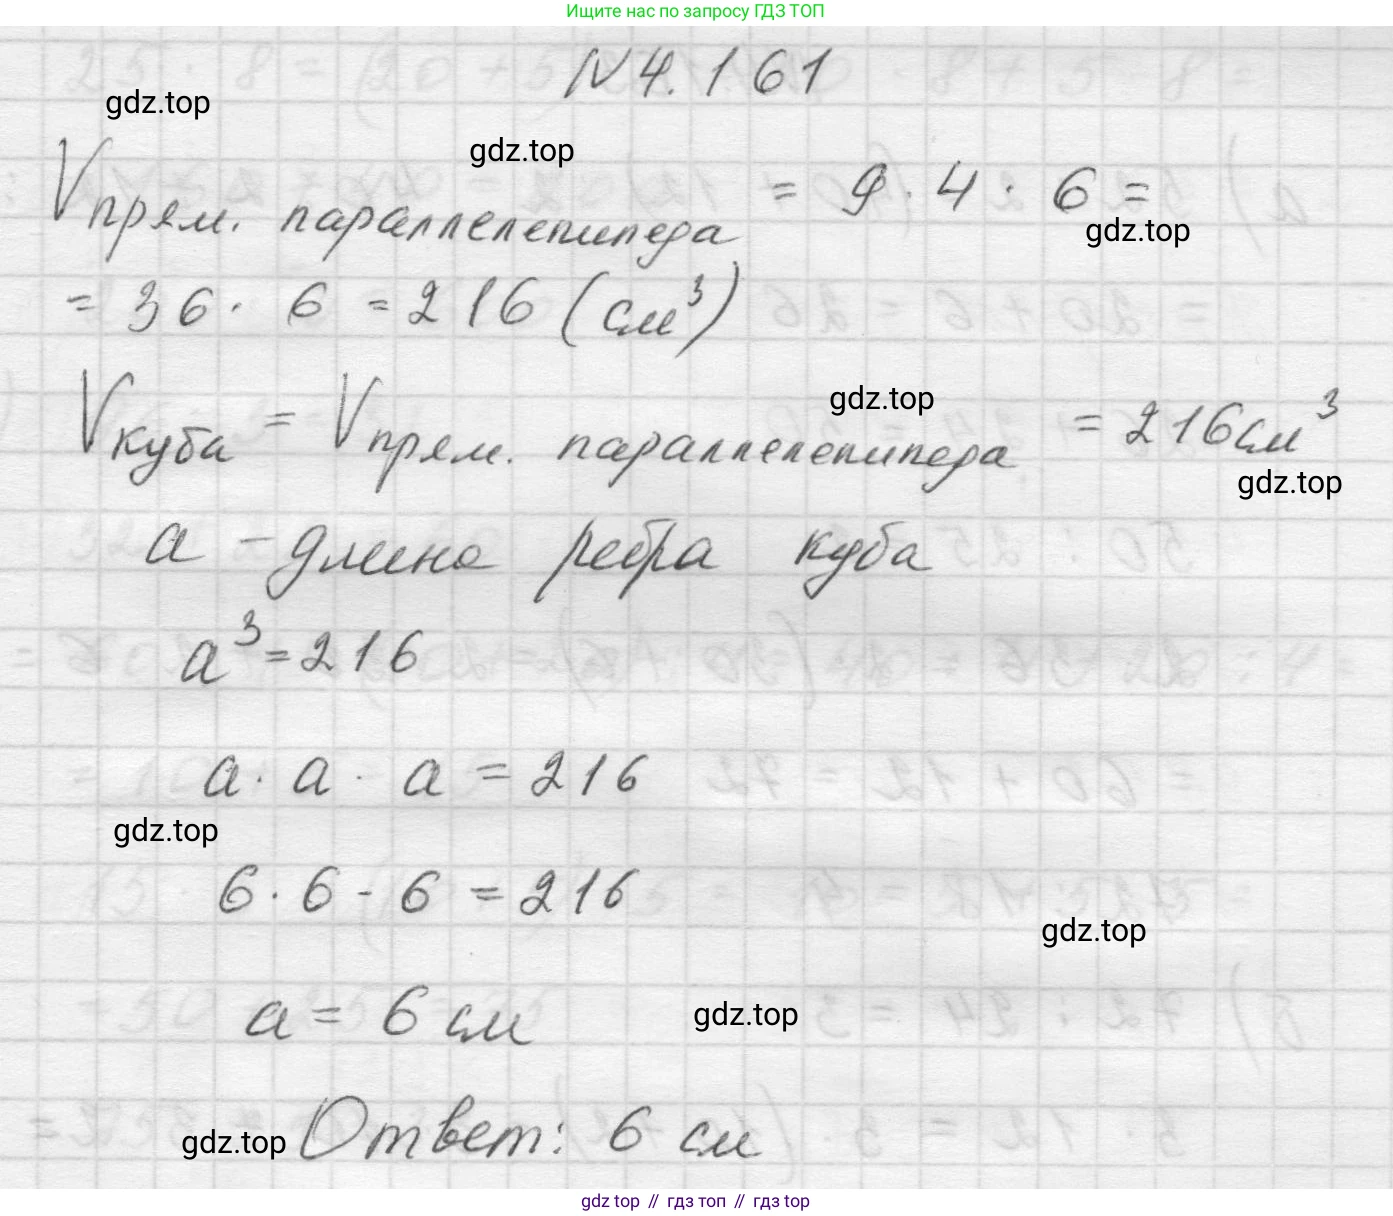 Ищите нас по запросу ГДЗ ТОП
N4.161
gdz.top
gdz.top
Vпрям. параллелепипеда = 9 · 4 · 6 =
gdz.top
= 36 · 6 = 216 (см³)
gdz.top
Vкуба = Vпрям. параллелепипеда = 216 см³
gdz.top
a – длина ребра куба
a³ = 216
a · a · a = 216
gdz.top
6 · 6 · 6 = 216
gdz.top
a = 6 см
gdz.top
gdz.top
Ответ: 6 см
gdz top // гдз топ // гдз top